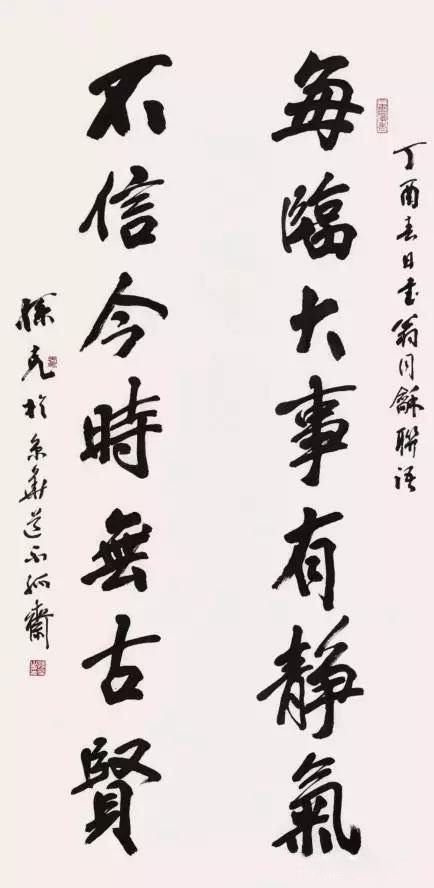 丁酉春日書翁同龢聯語
每臨大事有靜氣
不信今時無古賢
孫克於京華道不孤齋